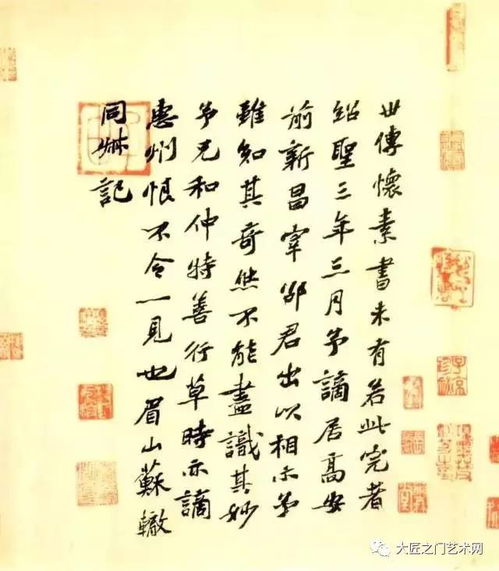 世傳懷素書未有若此完者
紹聖三年三月予謫居高安
前新昌宰邵君出以相示予
雖知其奇然不能盡識其妙
予兄和仲特善行草時亦謫
惠州恨不令一見也眉山蘇轍
同叔記
大匠之门艺术网